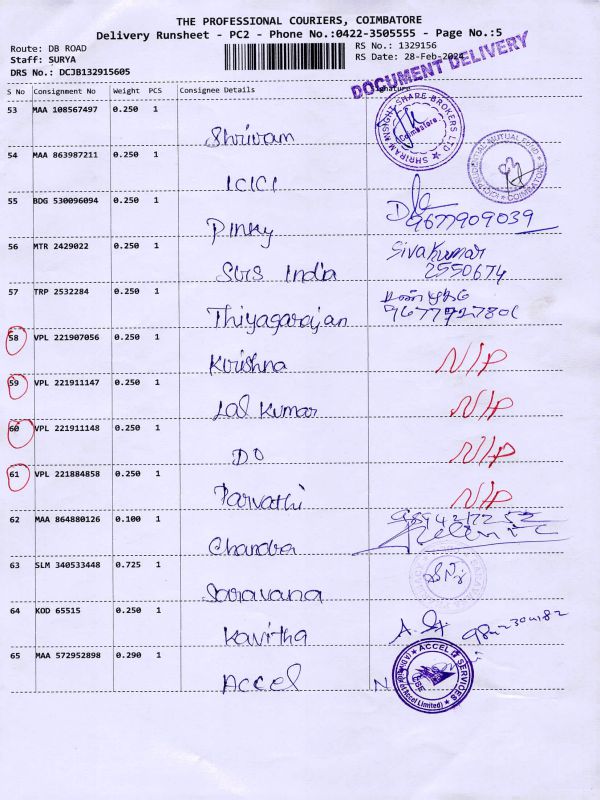 THE PROFESSIONAL COURIERS, COIMBATORE
Delivery Runsheet - PC2 - Phone No.:0422-3505555 - Page No.:5
Route: DB ROAD
RS No.: 1329156
Staff: SURYA
RS Date: 28-Feb-2024
DRS No.: DCJB132915605
DOCUMENT DELIVERY
S No Consignment No Weight PCS Consignee Details Signature
53 MAA 108567497 0.250 1
Shriram
SHRIRAM INSIGHT SHARE BROKERS LTD
Coimbatore
54 MAA 863987211 0.250 1
ICICI
MUTUAL FUND
COIMBATORE
55 BDG 530096094 0.250 1
Pinky
9677909039
56 MTR 2429022 0.250 1
SBIS India
Sivakumar
2550674
57 TRP 2532284 0.250 1
Thiyagarajan
58 VPL 221907056 0.250 1
Krishna N/P
59 VPL 221911147 0.250 1
Lal Kumar N/P
60 VPL 221911148 0.250 1
DO N/P
61 VPL 221884858 0.250 1
Parvathi N/P
62 MAA 864880126 0.100 1
Chandra
63 SLM 340533448 0.725 1
Saravana
64 KOD 65515 0.250 1
Kavitha
65 MAA 572952898 0.290 1
Accel
ACCEL IT SERVICES
CBE